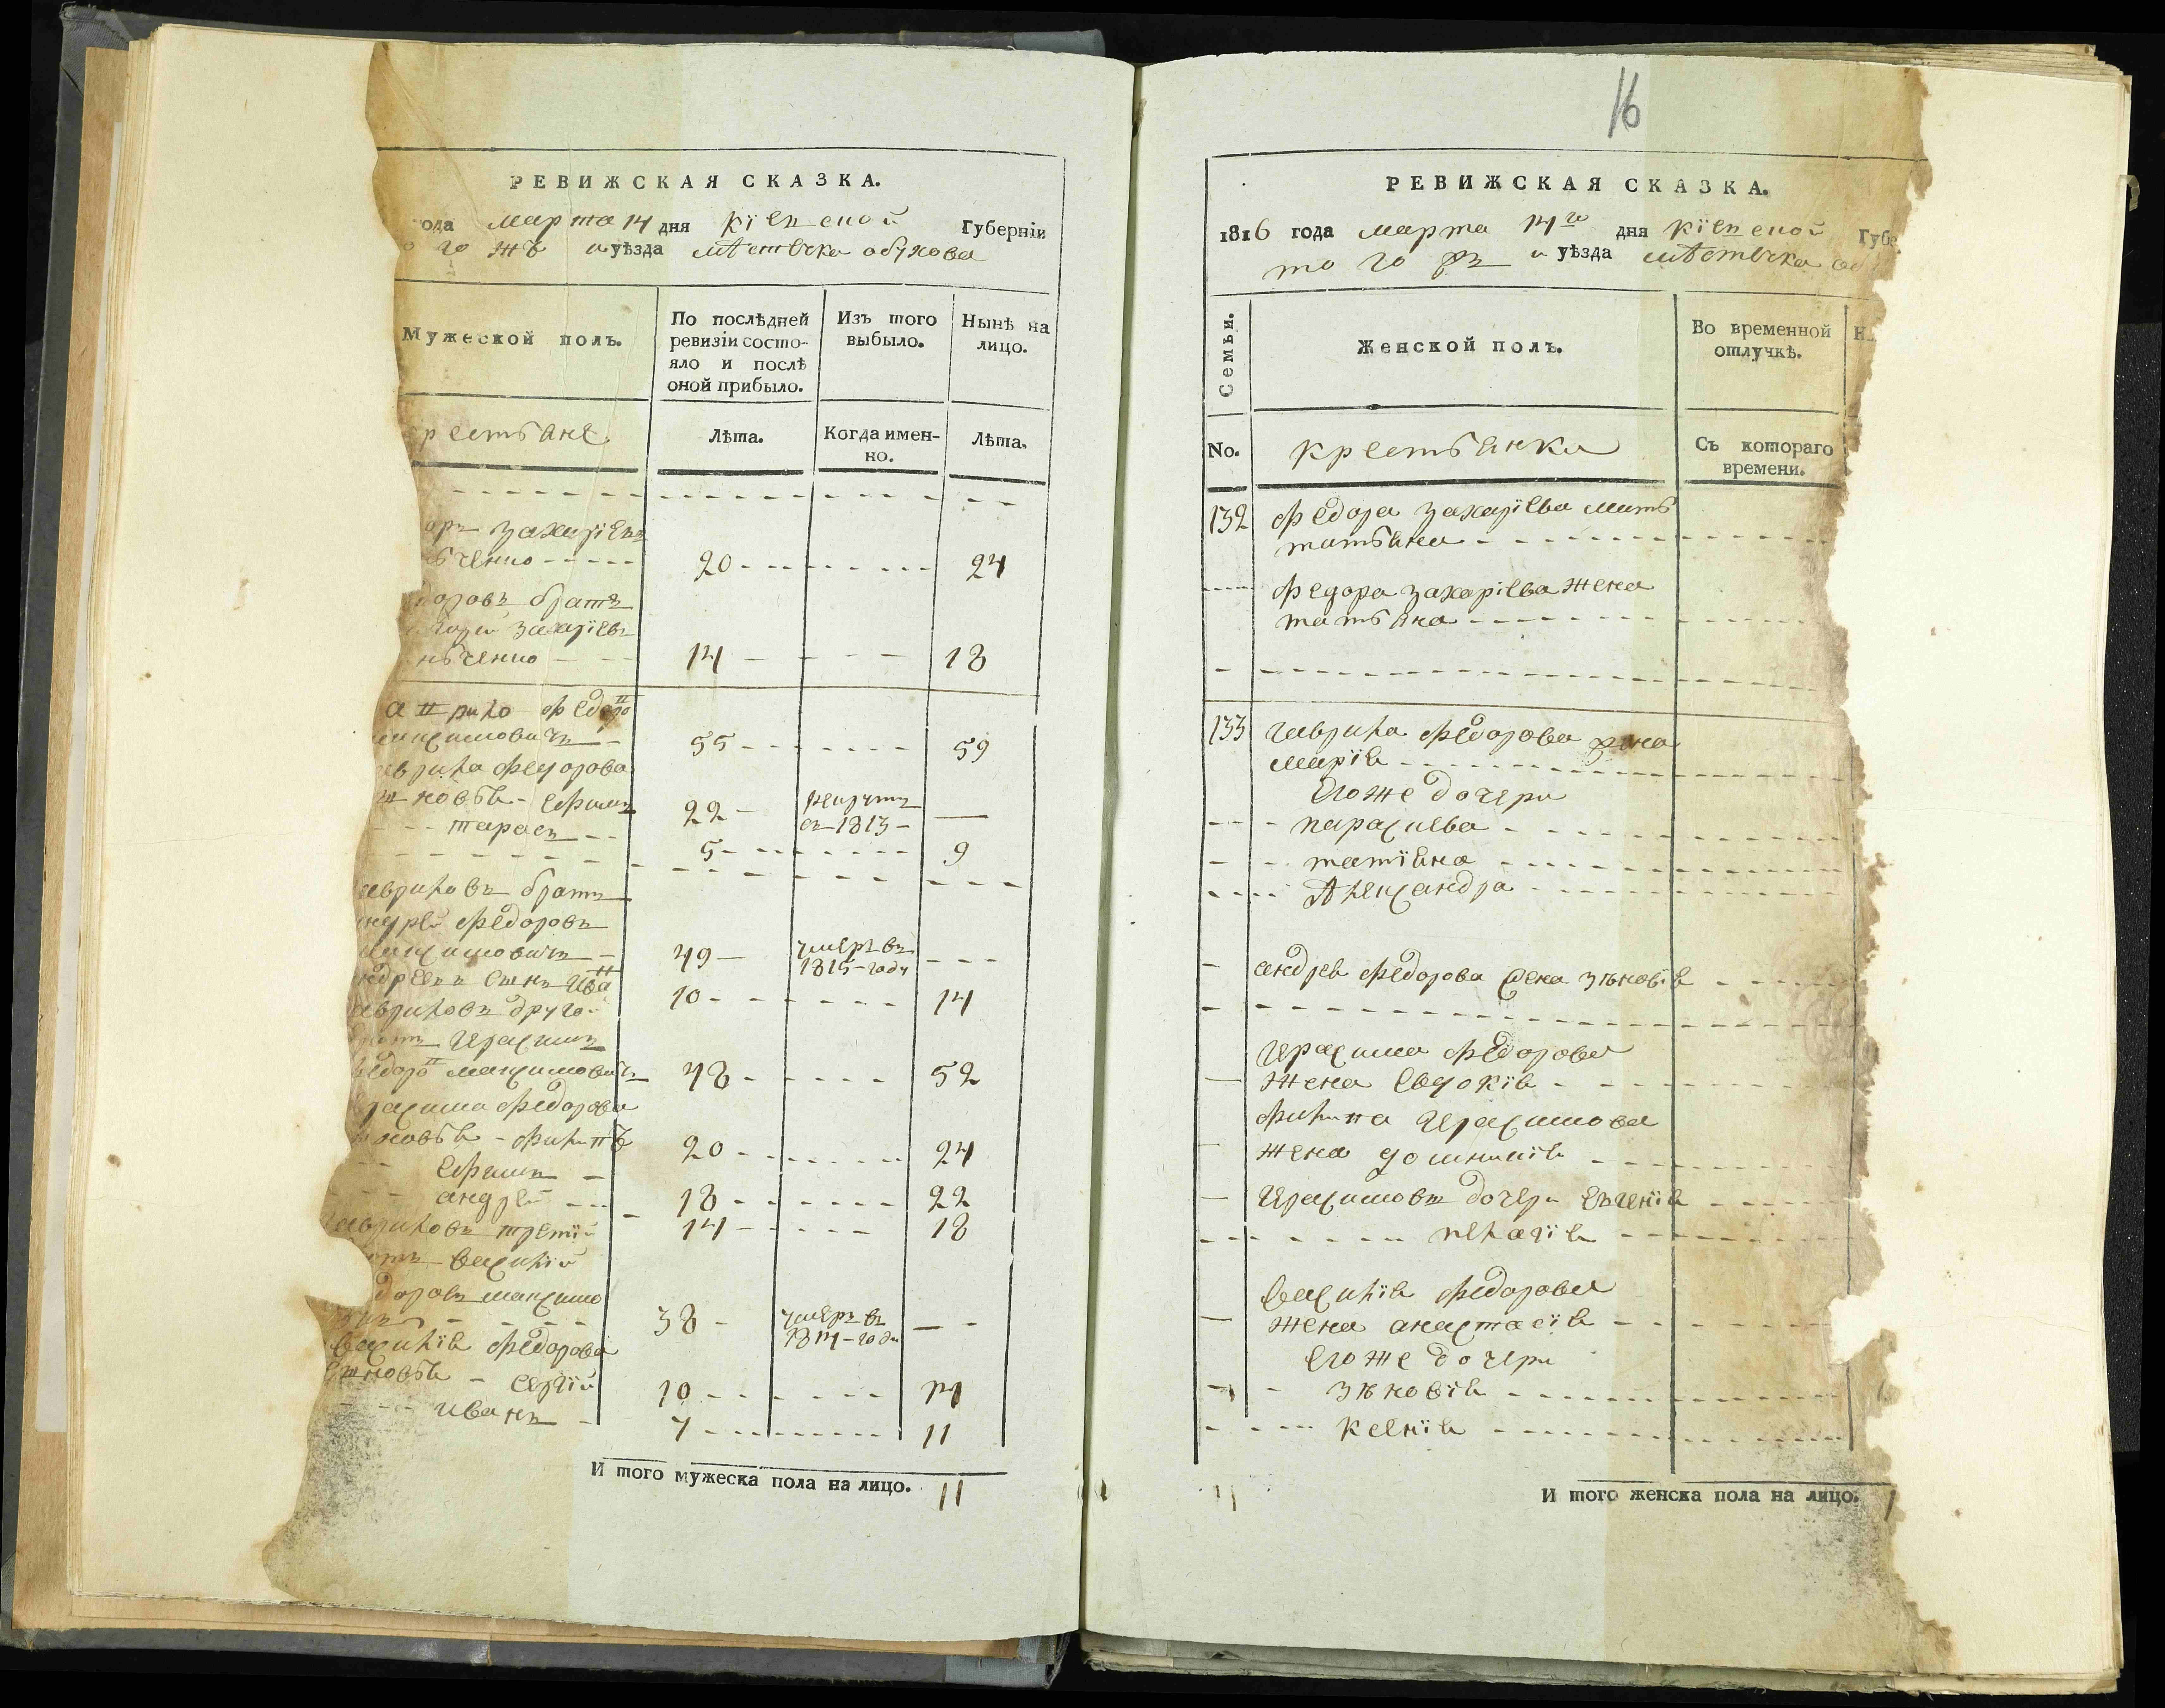 РЕВИЖСКАЯ СКАЗКА.
года марта 14 дня Кіевской Губерніи
го жъ уѣзда мѣстечка обухова
Мужеской полъ.
По послѣдней ревизіи состояло и послѣ оной прибыло.
Изъ того выбыло.
Нынѣ на лицо.
рестьяне
Лѣта.
Когда именно.
Лѣта.
оръ захаріевъ
ченко 20 24
доровъ братъ
захаріевъ
нѣченко 14 18
Гаврило Федоро
максимовичъ 55 59
аврила федорова
новья Ефимъ 22 рекрутъ въ 1813
тарасъ 5 9
авриловъ братъ
ндрей федоровъ
максимовичъ 49 умеръ въ 1815 году
ндреевъ сынъ Ива 10 14
авриловъ друго
братъ Герасимъ
федоро максимовичъ 48 52
ерасима федорова
новья филипъ 20 24
Ефимъ 18 22
андрей 14 18
авриловъ третій
атъ василій
доровъ максимо
вичъ 38 умеръ въ 1814 году
василія федорова
сыновья сергій 10 14
иванъ 7 11
И того мужеска пола на лицо. 11
16
РЕВИЖСКАЯ СКАЗКА.
1816 года марта 14го дня Кіевской Губе
того жъ уѣзда мѣстечка об
Семьи.
Женской полъ.
Во временной отлучкѣ.
No.
крестьянки
Съ котораго времени.
132 федора захаріева мать
татьяна
федора захаріева жена
татьяна
133 гаврила федорова жена
марія
Его же дочери
параскева
татіяна
Александра
андрея федорова жена зѣновія
герасима федорова
жена Евдокія
филипа герасимова
жена домникія
герасимовы дочери Евгенія
пелагія
василія федорова
жена анастасія
Его же дочери
зѣновія
ксенія
И того женска пола на лицо.